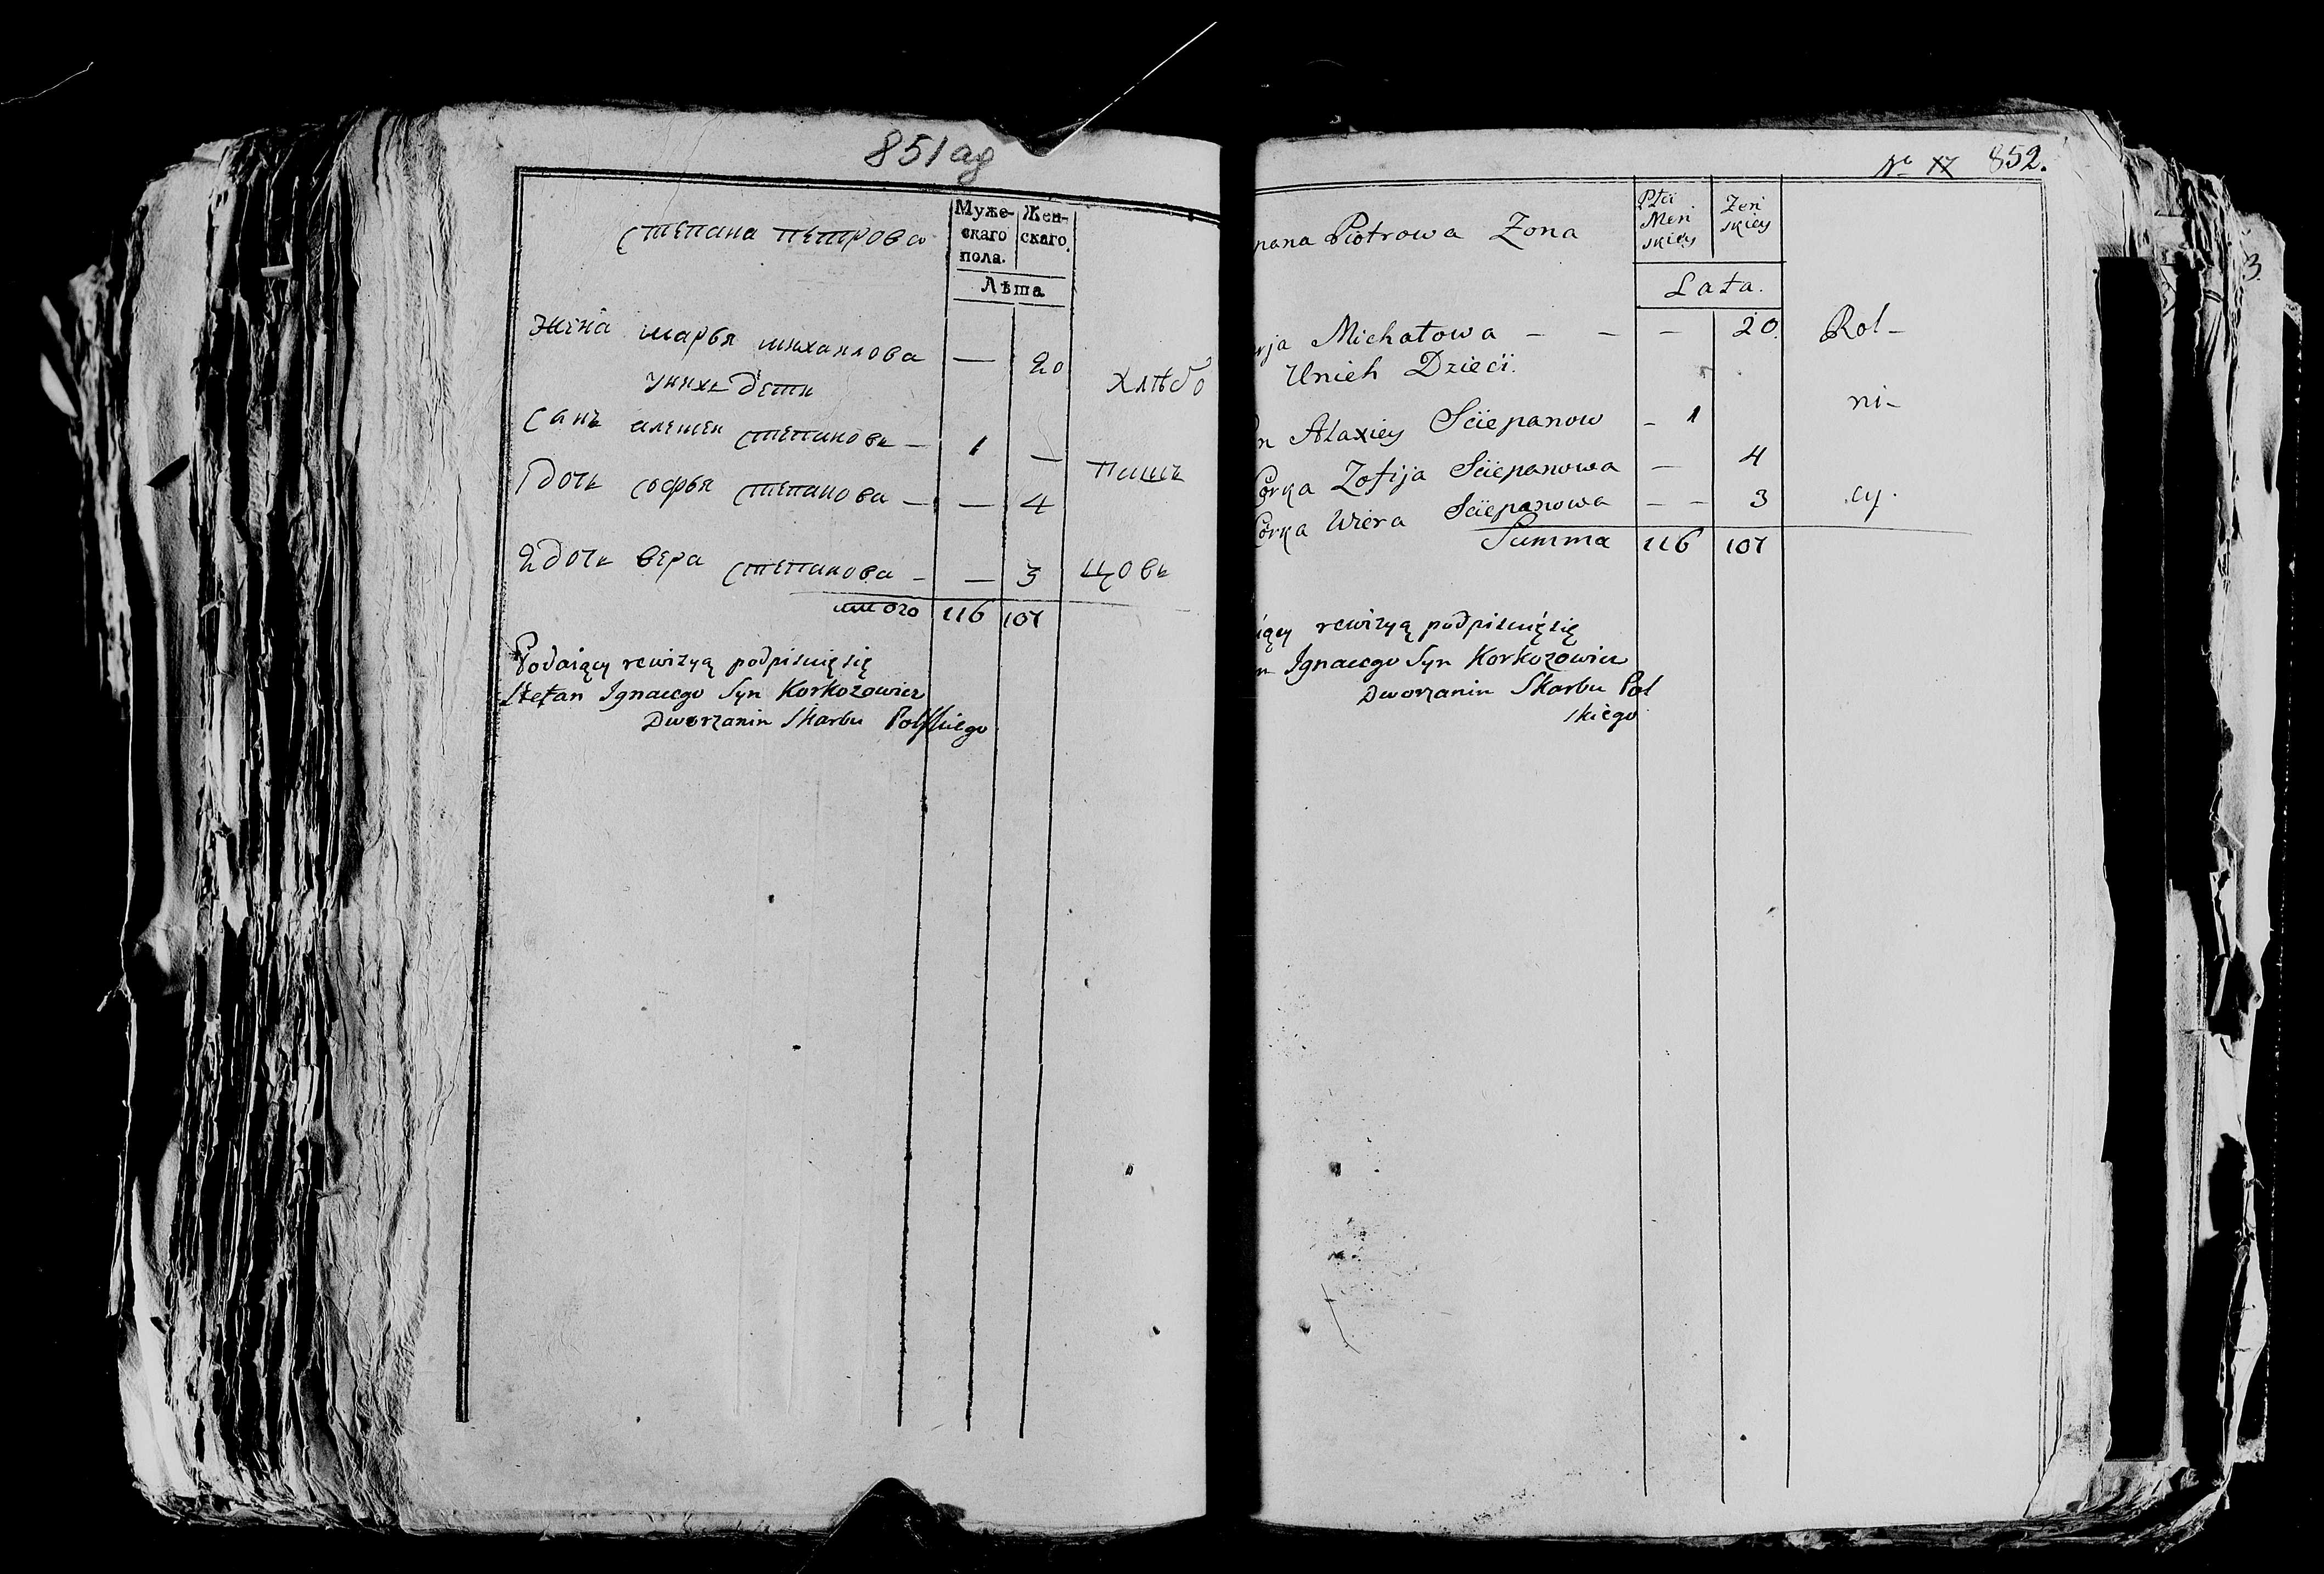 851 ag
Степана Петрова
Муже-
скаго
пола.
Жен-
скаго
Лѣта
жена марья михаилова — 20
уних дети
Хлѣбо
Сынъ алексеи степановъ — 1 —
1 дочь софья степанова — — 4
пашъ
2 дочь вера степанова — — 3
цовъ
итого 116 107
Podaiący rewizyą podpisuię się
Stefan Ignacego Syn Korkozowicz
Dworzanin Skarbu Polskiego
№ 17 852.
pana Piotrowa Zona
Płci
Męn
skiey
Zeń
skiey
Lata.
rja Michałowa — — — 20.
Rol-
Unich Dzieci.
n Alaxiey Sciepanow - 1
ni-
Corka Zofija Sciepanowa — 4
Corka Wiera Sciepanowa — — 3
cy.
Summa 116 107
iący rewizyą podpisuię się
n Ignacego Syn Korkozowicz
Dworzanin Skarbu Pol
skiego
3.